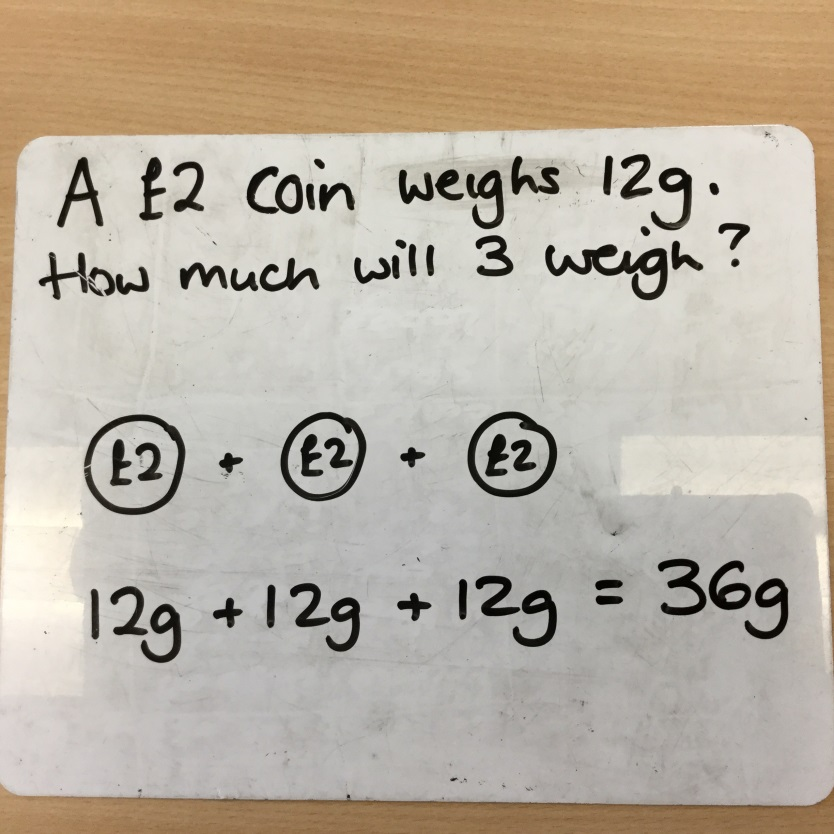 A £2 coin weighs 12g.
How much will 3 weigh?
£2 + £2 + £2
12g + 12g + 12g = 36g